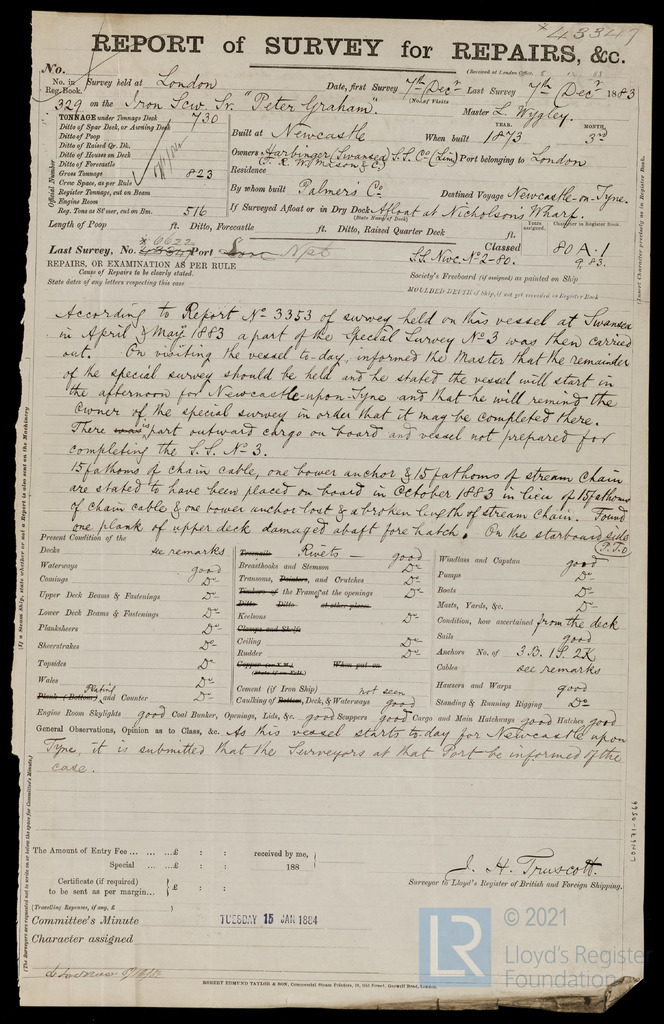 *43347
REPORT of SURVEY for REPAIRS, &c.
(Received at London Office,
No.
No. in Reg. Book. Survey held at London Date, first Survey 7th Decr Last Survey 7th Decr 1883
(No. of Visits
329 on the Iron Scw. Sr. "Peter Graham". Master L. Wrgley.
TONNAGE under Tonnage Deck 730
Ditto of Spar Deck, or Awning Deck
Ditto of Poop
Ditto of Raised Qr. Dk.
Ditto of Houses on Deck
Ditto of Forecastle
Gross Tonnage 823
Crew Space, as per Rule
Register Tonnage, cut on Beam
Engine Room
Reg. Tons as Str use, cut on Bm. 516
Official Number
YEAR. MONTH.
Built at Newcastle When built 1873 3rd
Owners Harbinger (Swansea) S.S. Co (Lim) Port belonging to London
Residence
By whom built Palmers Co Destined Voyage Newcastle-on-Tyne.
If Surveyed Afloat or in Dry Dock Afloat at Nicholson's Wharf.
(State Name of Dock)
Length of Poop ft. Ditto, Forecastle ft. Ditto, Raised Quarter Deck ft.
Years assigned. Character in Register Book.
Last Survey, No. Port Npt Classed 80 A.1
S.S. Nwc. No 2-80. 9,83.
REPAIRS, OR EXAMINATION AS PER RULE
Cause of Repairs to be clearly stated.
State dates of any letters respecting this case
Society's Freeboard (if assigned) as painted on Ship
MOULDED DEPTH of Ship, if not yet recorded in Register Book
(Insert Character precisely as in Register Book.
According to Report No 3353 of survey held on this vessel at Swansea
in April & May 1883 a part of the Special Survey No 3 was then carried
out. On visiting the vessel to-day, informed the Master that the remainder
of the special survey should be held and he stated the vessel will start in
the afternoon for Newcastle-upon-Tyne and that he will remind the
Owner of the special survey in order that it may be completed there.
There is part outward cargo on board and vessel not prepared for
completing the S.S. No 3.
15 fathoms of chain cable, one bower anchor & 15 fathoms of stream chain
are stated to have been placed on board in October 1883 in lieu of 15 fathoms
of chain cable & one bower anchor lost & a broken length of stream chain. Found
one plank of upper deck damaged abaft fore hatch. On the starboard side
(P.T.O)
Present Condition of the
Decks see remarks
Waterways good
Comings Do
Upper Deck Beams & Fastenings Do
Lower Deck Beams & Fastenings Do
Planksheers Do
Sheerstrakes Do
Topsides Do
Wales Do
Plank (Bottom) Plating and Counter Do
Treenails Rivets — good
Breasthooks and Stemson Do
Transoms, Pointers, and Crutches Do
Timbers of the Frame at the openings Do
Ditto Ditto at other places
Keelsons Do
Clamps and Shelfs
Ceiling Do
Rudder Do
Copper (or Y.M.) When put on
Cement (if Iron Ship) not seen
Caulking of Bottom, Deck, & Waterways good
Windlass and Capstan good
Pumps Do
Boats Do
Masts, Yards, &c. Do
Condition, how ascertained from the deck
Sails good
Anchors No. of 3.B. 1S. 2K
Cables see remarks
Hawsers and Warps good
Standing & Running Rigging Do
Engine Room Skylights good Coal Bunker, Openings, Lids, &c. good Scuppers good Cargo and Main Hatchways good Hatches good
General Observations, Opinion as to Class, &c. As this vessel starts to-day for Newcastle upon
Tyne, it is submitted that the Surveyors at that Port be informed of the
case.
(If a Steam ship, state whether or not a Report is also sent on the Machinery
(The Surveyors are requested not to write on or below the space for Committee's Minute.)
LON671-0566
The Amount of Entry Fee ... ... ...£ : : received by me,
Special ... ...£ : : 188
Certificate (if required) to be sent as per margin... }£ : :
(Travelling Expenses, if any, £ )
J. H. Truscott.
Surveyor to Lloyd's Register of British and Foreign Shipping.
Committee's Minute TUESDAY 15 JAN 1884
Character assigned
ROBERT EDMUND TAYLOR & SON, Commercial Steam Printers, 19, Old Street, Goswell Road, London.
LR © 2021
Lloyd's Register
Foundation